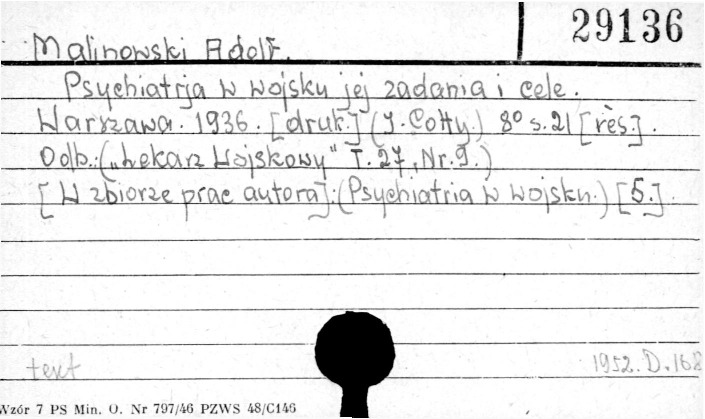 29136
Malinowski Adolf.
Psychiatrja w wojsku jej zadania i cele.
Warszawa. 1936. [druk.] (J. Cotty.) 8º s. 21 [rés.].
Odb.: („Lekarz Wojskowy" T. 27, Nr. 9.)
[W zbiorze prac autora]: (Psychiatria w wojsku.) [5.].
text 1952. D. 168
Wzór 7 PS Min. O. Nr 797/46 PZWS 48/C146